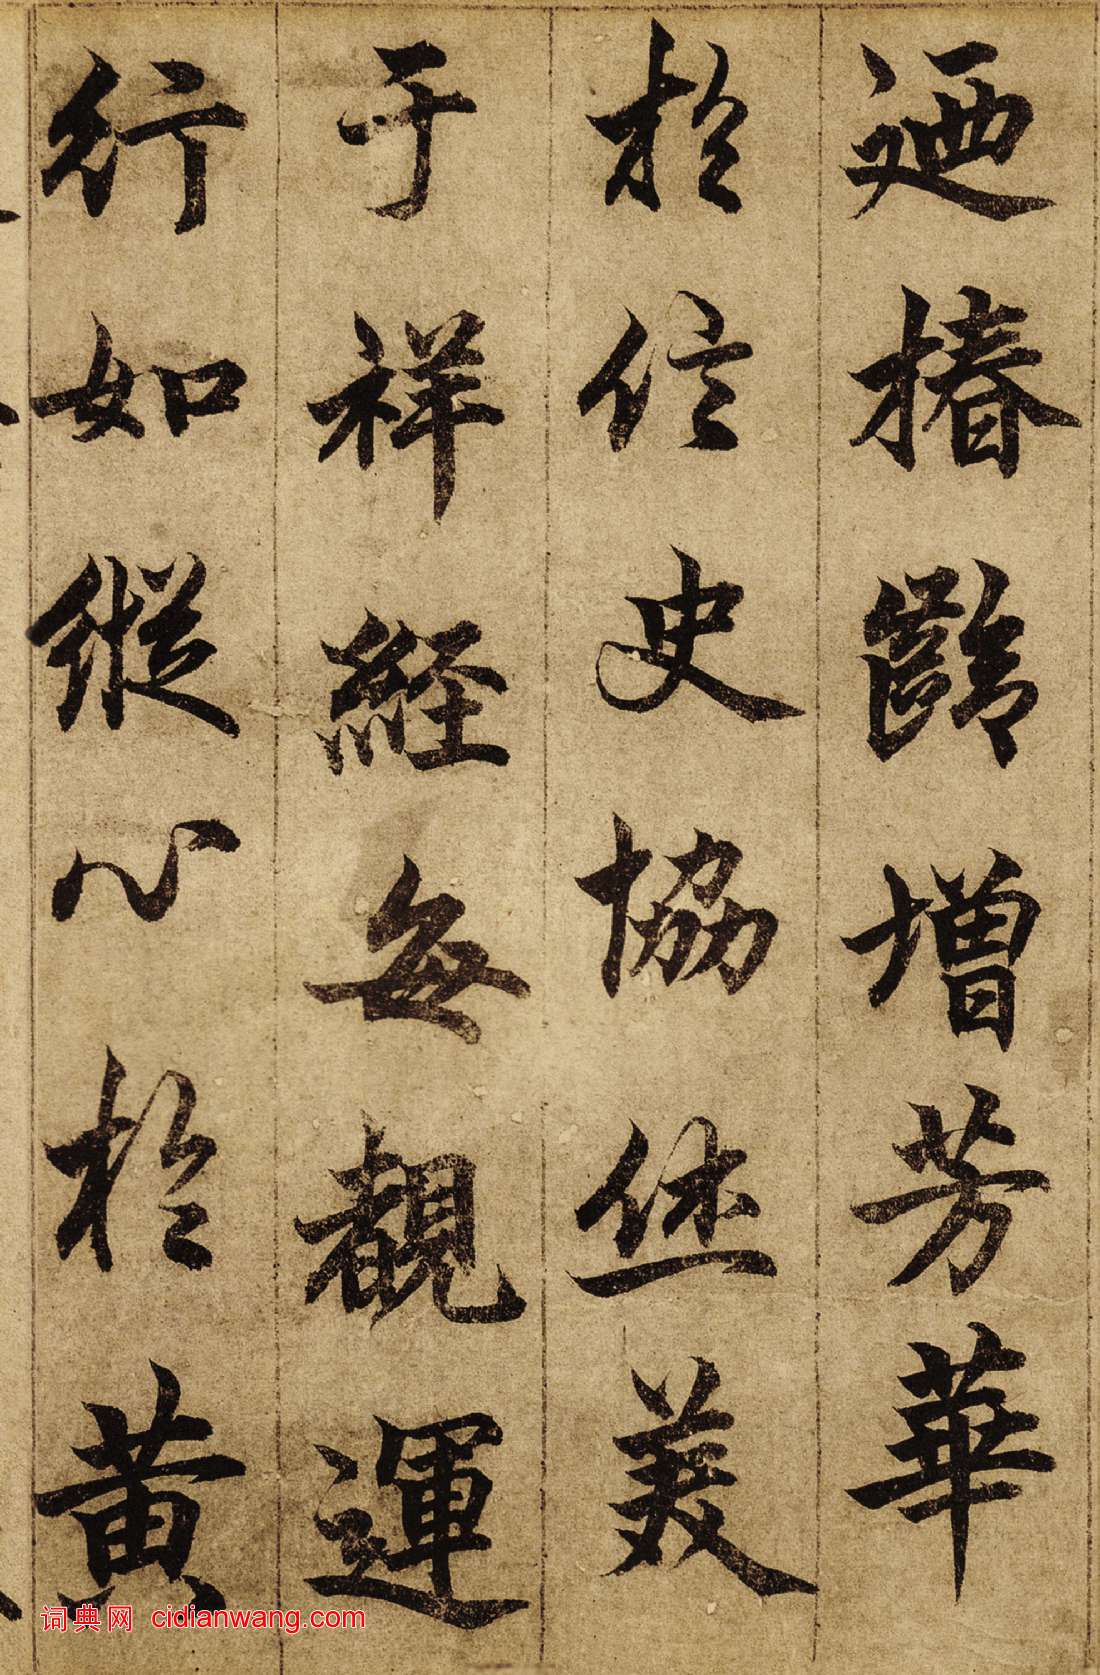 迺椿齡增芳華
於信史協休美
于祥經每覩運
行如縱心於黃
词典网 cidianwang.com